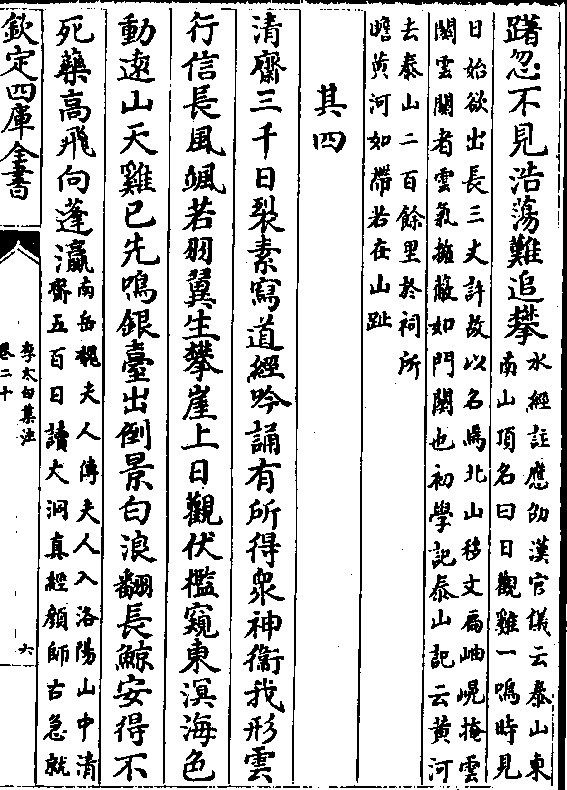 躇忽不見浩蕩難追攀水經註應劭漢官儀云泰山東
南山頂名曰日觀雞一鳴時見
日始欲出長三丈許故以名焉北山移文扃岫幌掩雲
關雲關者雲氣擁蔽如門關也初學記泰山記云黃河
去泰山二百餘里於祠所
瞻黃河如帶若在山趾
其四
清齋三千日裂素寫道經吟誦有所得衆神衞我形雲
行信長風颯若羽翼生攀崖上日觀伏檻窺東溟海色
動遠山天雞已先鳴銀臺出倒景白浪翻長鯨安得不
死藥高飛向蓬瀛南岳魏夫人傳夫人入洛陽山中清
齋五百日讀大洞真經顔師古急就
欽定四庫全書
李太白集注
卷二十
六